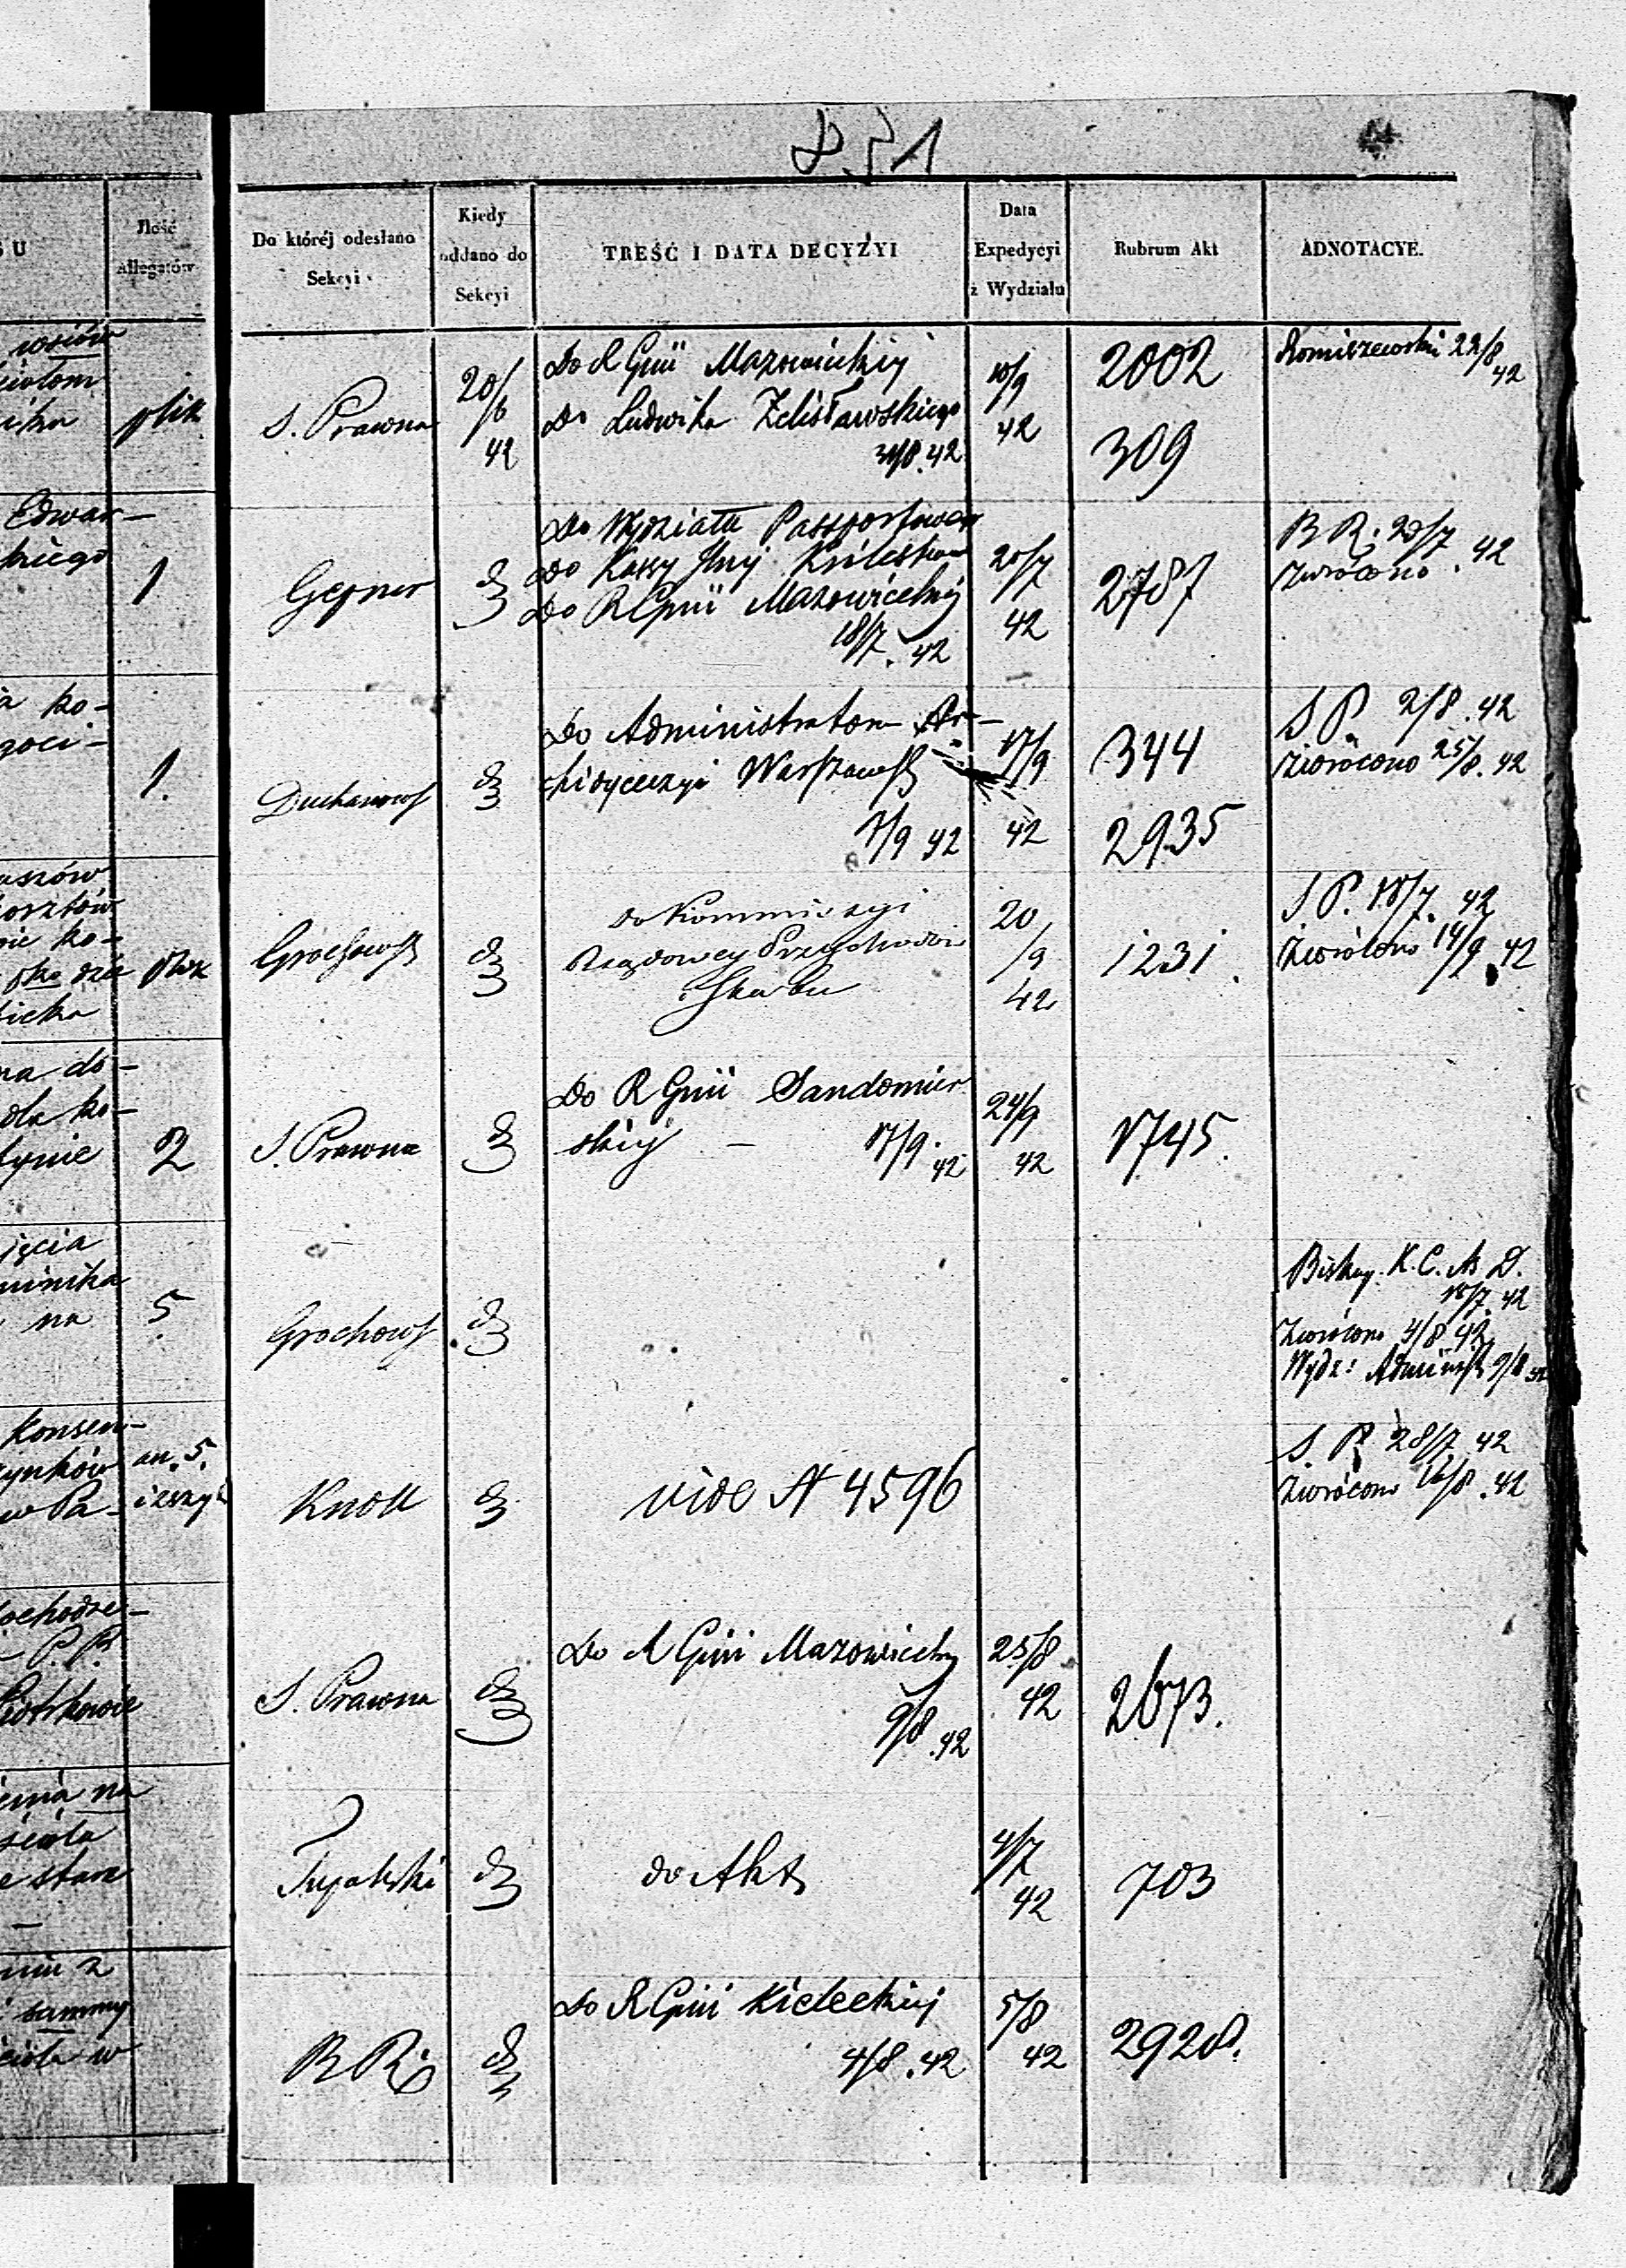 831
S U
Ilość
Allegatów
Do któréj odesłano
Sekcyi
Kiedy
oddano do
Sekcyi
TREŚĆ I DATA DECYZYI
Data
Expedycyi
z Wydziału
Rubrum Akt
ADNOTACYE.
plik
S. Prawna
20/6
42
Do R Gnii Mazowieckiej
Do Ludwika Zelisławskiego
31/8.42
10/9
42
2002
309
22/8
42
Edwar-
kiego
1
Gepner
Do Wydziału Passportowego
Do Kassy Głnej Królestwa
Do R Gnii Mazowieckiej
18/7.42
20/7
42
2787
B R. 29/7
zwrócono .42
a ko-
1.
Duchanows
Do Administratora Ar-
chidyecezyi Warszawsk
7/9 42
17/9
42
344
2935
S P. 2/8.42
zwrócono 25/8.42
kosztów
plik
Grochowsk
do Kommissyi
Rządowey Przychodów
i Skarbu
20
/9
42
1231.
S P. 18/7. 42
Zwrócono 14/9.42
na do-
dla ko-
2
S. Prawna
Do R Gnii Sandomier
skiej — 17/9.
42
24/9
42
1745.
jęcia
minika
na
5
Grochows
Biskup. K.C.
18/7.42
Zwrócono 4/8 42
Wydz: Administr 9/8 42
Konsen-
an. 5.
w Pa-
i zszyt
Knoll
vide N 4596
S. P. 28/7 42
Zwrócono 16/8.42
ochodze-
P. P.
Piotrkowie
S. Prawna
Do R Gnii Mazowieckiej
9/8.42
25/8
42
2673.
na
ścioła
stare
Tupalski
do Akt
4/7
42
703
summy
w
B R.
Do R Gnii Kieleckiej
4/8.42
5/8
42
2928.